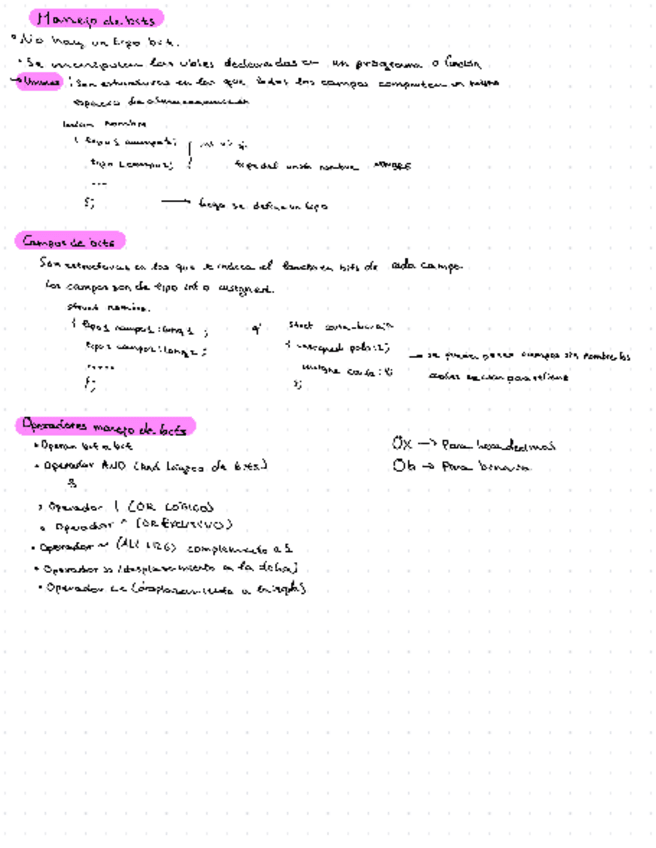 Manejo de bits
• No hay un tipo bit.
• Se manipulan las vbles declaradas en un programa o función
→ Uniones : Son estructuras en las que todos los campos comparten un mismo
espacio de almacenamiento
union nombre
{ tipo1 campo1;
tipo2 campo2; tipo del unión nombre NOMBRE
...
}; → luego se define un tipo
Campos de bits
Son estructuras en las que se indica el en bits de cada campo.
Los campos son de tipo int o unsigned.
struct nombre.
{ tipo1 campo1 : long1 ; ej struct carta_baraja
tipo2 campo2 : long2 ; { unsigned palo:2;
..... carta : 4;
}; };
→ se pueden poner campos sin nombre los
Operadores manejo de bits
• Operan bit a bit
• Operador AND (And lógico de bits)
&
• Operador | (OR LÓGICO)
• Operador ^ (OR EXCLUSIVO)
• Operador ~ (Alt 126) complemento a 1
• Operador >> (desplazamiento a la dcha)
• Operador << (desplazamiento a la izqda)
0x → Para hexadecimal
0b → Para binario